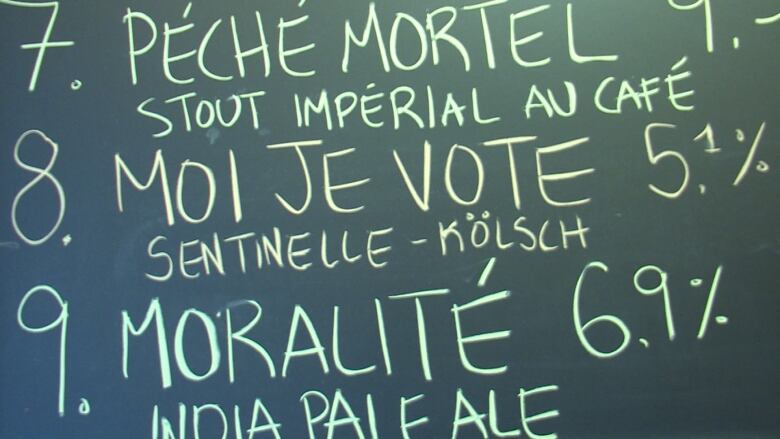 7. PÉCHÉ MORTEL 9.
STOUT IMPÉRIAL AU CAFÉ
8. MOI JE VOTE 5.1%
SENTINELLE - KÖLSCH
9. MORALITÉ 6.9%
INDIA PALE ALE